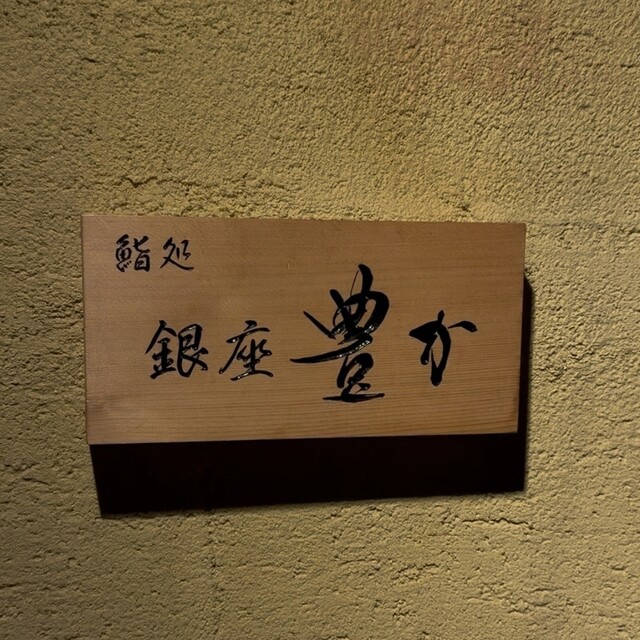 鮨処
銀座豊か